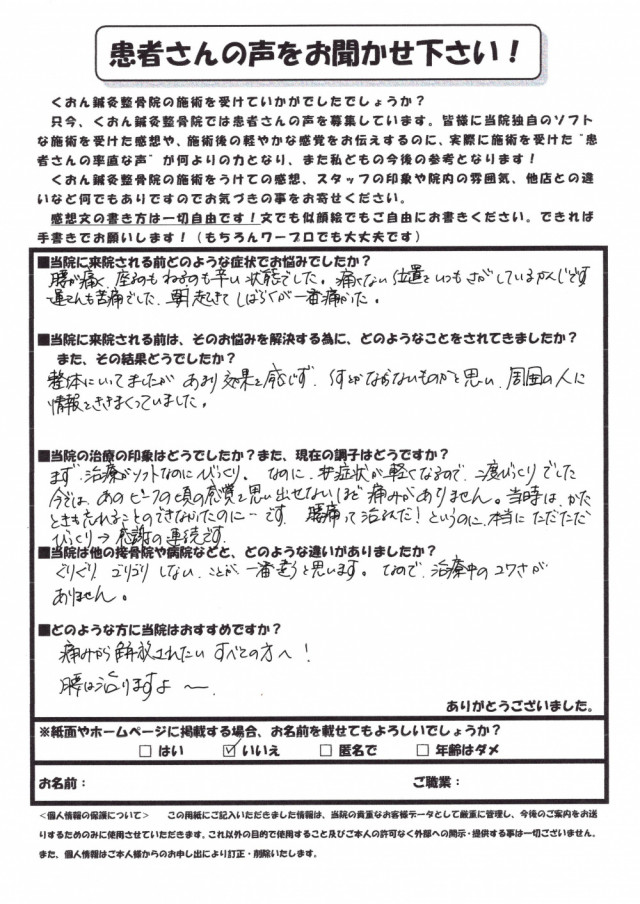 患者さんの声をお聞かせ下さい！
くおん鍼灸整骨院の施術を受けていかがでしたでしょうか？
只今、くおん鍼灸整骨院では患者さんの声を募集しています。皆様に当院独自のソフト
な施術を受けた感想や、施術後の軽やかな感覚をお伝えするのに、実際に施術を受けた“患
者さんの率直な声”が何よりの力となり、また私どもの今後の参考となります！
くおん鍼灸整骨院の施術をうけての感想、スタッフの印象や院内の雰囲気、他店との違
いなど何でもありですのでお気づきの事をお寄せください。
感想文の書き方は一切自由です！文でも似顔絵でもご自由にお書きください。できれば
手書きでお願いします！（もちろんワープロでも大丈夫です）
■当院に来院される前どのような症状でお悩みでしたか？
腰が痛く、座るのもねるのも辛い状態でした。痛くない位置をいつもさがしているかんじです
運てんも苦痛でした。朝起きてしばらくが一番痛かった。
■当院に来院される前は、そのお悩みを解決する為に、どのようなことをされてきましたか？
また、その結果どうでしたか？
整体にいってましたが あまり効果を感じず、何とかならないものかと思い、周囲の人に
情報をききまくっていました。
■当院の治療の印象はどうでしたか？また、現在の調子はどうですか？
まず、治療がソフトなのにびっくり。なのに、症状が軽くなるので、二度びっくりでした
今では、あのピークの頃の感覚を思い出せないほど痛みがありません。当時は、かた
ときも忘れることのできなかったのに…です。腰痛って治るんだ！というのに、本当にただただ
びっくり→感謝の連続です。
■当院は他の接骨院や病院などと、どのような違いがありましたか？
ぐりぐり、ゴリゴリしない、ことが一番違うと思います。なので、治療中のコワさが
ありません。
■どのような方に当院はおすすめですか？
痛みから解放されたい すべての方へ！
腰は治りますよ〜。
ありがとうございました。
※紙面やホームページに掲載する場合、お名前を載せてもよろしいでしょうか？
□ はい ☑ いいえ □ 匿名で □ 年齢はダメ
お名前： ご職業：
＜個人情報の保護について＞ この用紙にご記入いただきました情報は、当院の貴重なお客様データとして厳重に管理し、今後のご案内をお送
りするためのみに使用させていただきます。これ以外の目的で使用すること及びご本人の許可なく外部への開示・提供する事は一切ございません。
また、個人情報はご本人様からのお申し出により訂正・削除いたします。